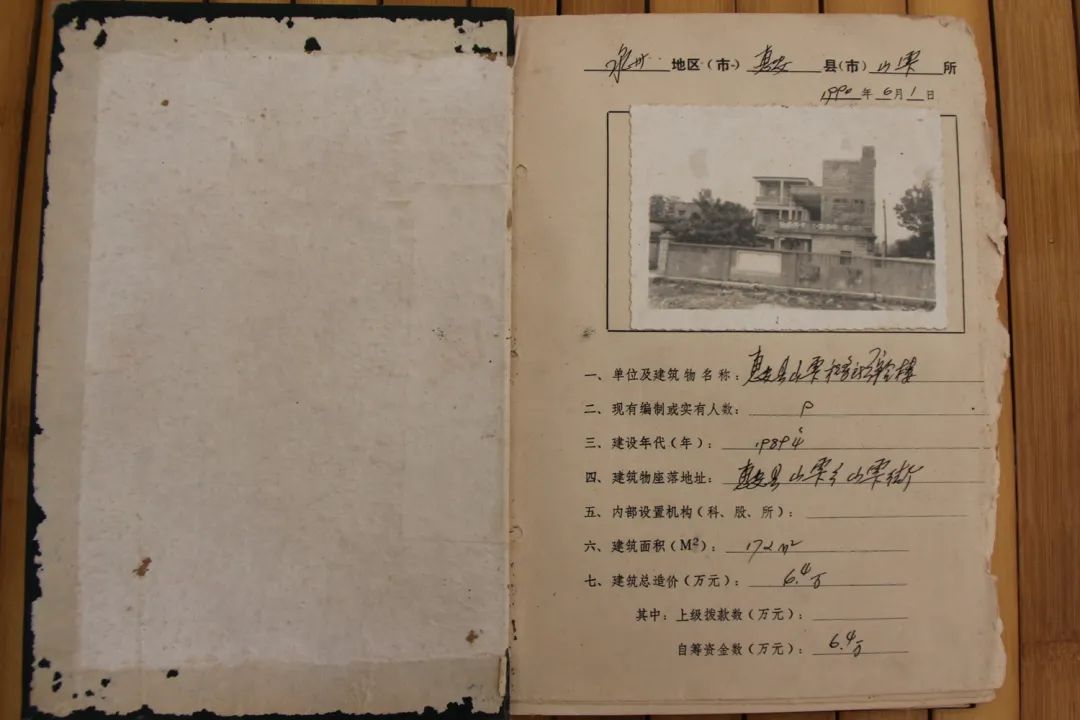 泉州地区(市)惠安县(市)山霞所
1990年6月1日
一、单位及建筑物名称:惠安县山霞税务所综合楼
二、现有编制或实有人数:
三、建设年代(年):1989年
四、建筑物座落地址:惠安县山霞乡山霞街
五、内部设置机构(科、股、所):
六、建筑面积(M²):172m²
七、建筑总造价(万元):6.4万
其中:上级拨款数(万元):
自筹资金数(万元):6.4万